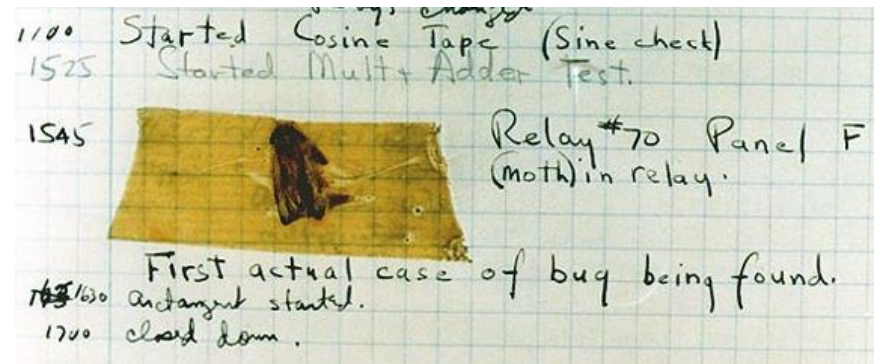 changed
1100 Started Cosine Tape (Sine check)
1525 Started Mult + Adder Test.
1545 Relay #70 Panel F
(moth) in relay.
First actual case of bug being found.
1630 arctangent started.
1700 closed down.